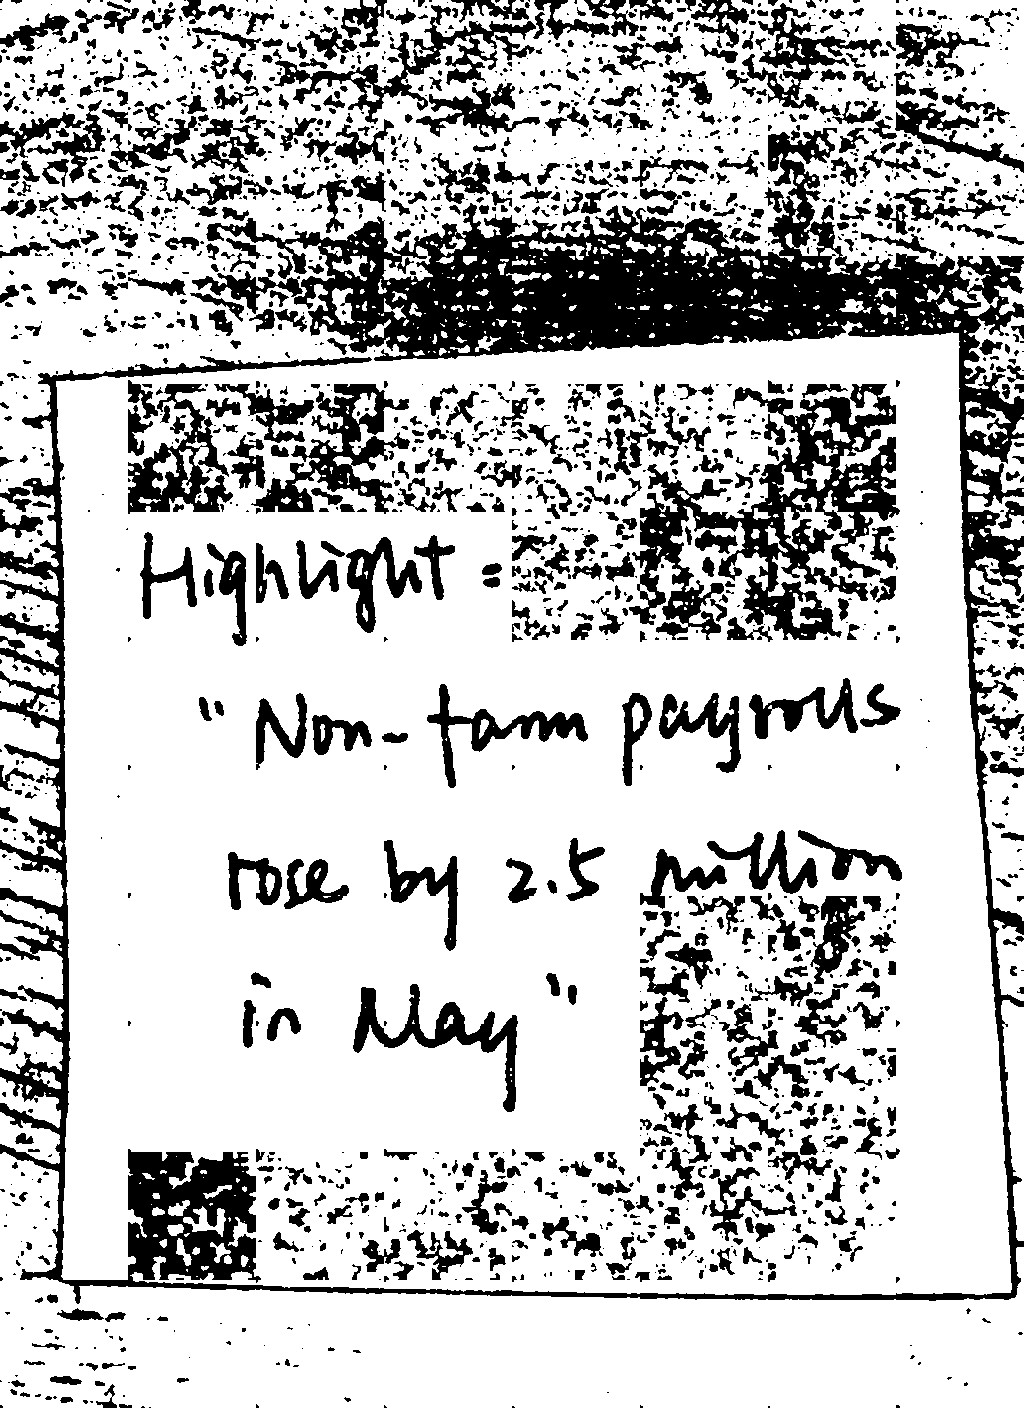 Highlight :
" Non-farm payrolls
rose by 2.5 million
in May "